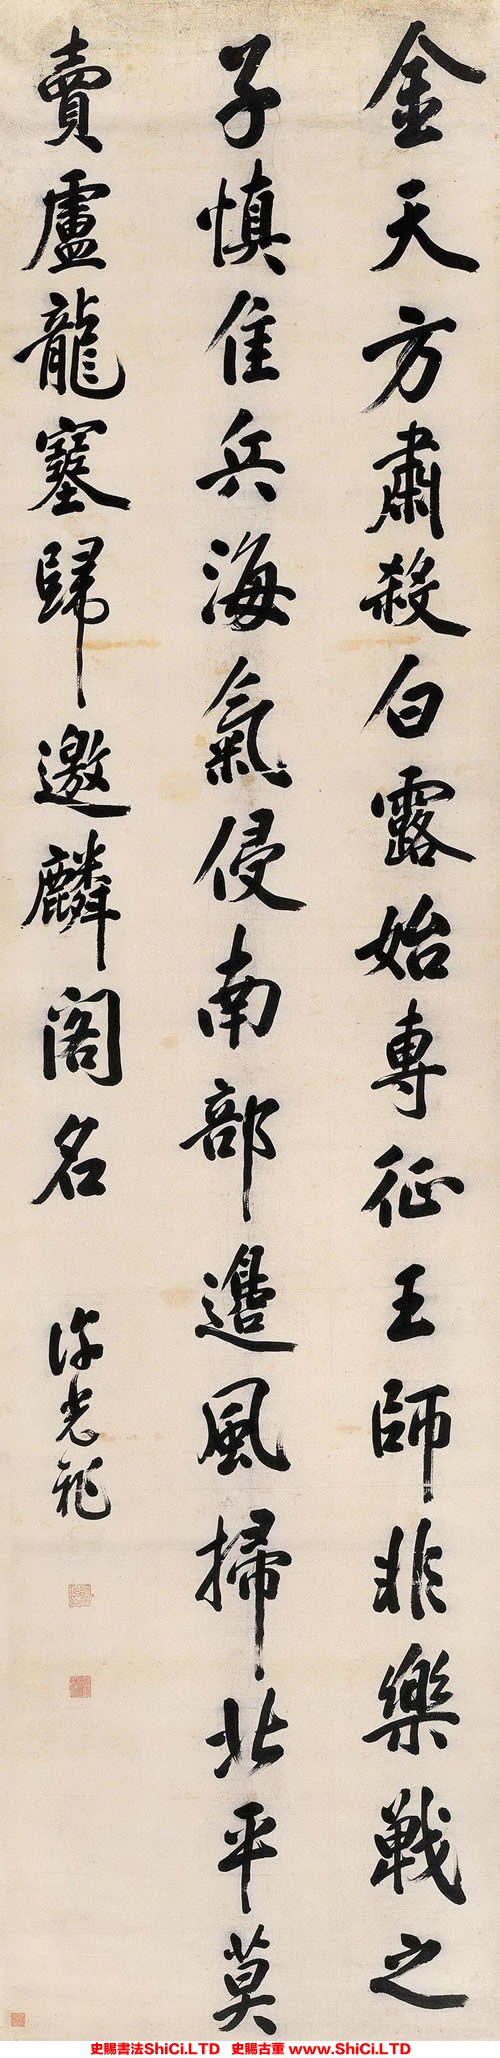 金天方肅殺白露始專征王師非樂戰之
子慎佳兵海氣侵南部邊風掃北平莫
賣盧龍塞歸邀麟閣名
許光祚
史賜書法ShiCi.LTD 史賜古董 www.ShiCi.LTD